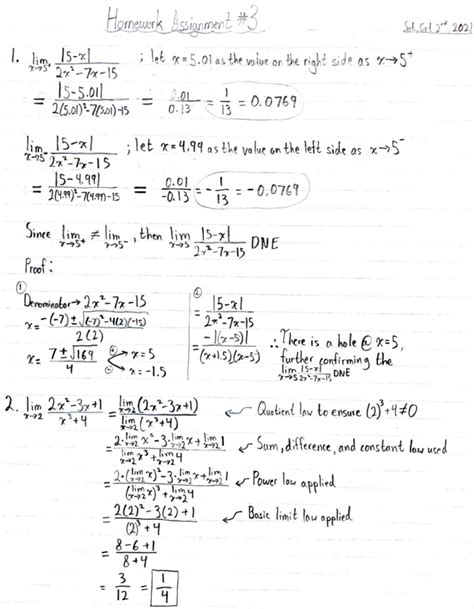 Homework Assignment #3
Sat, Oct 2nd, 2021
1. lim x→5⁺ |5-x| / 2x²-7x-15 ; let x=5.01 as the value on the right side as x→5⁺
= |5-5.01| / 2(5.01)²-7(5.01)-15 = 0.01 / 0.13 = 1/13 = 0.0769
lim x→5⁻ |5-x| / 2x²-7x-15 ; let x=4.99 as the value on the left side as x→5⁻
= |5-4.99| / 2(4.99)²-7(4.99)-15 = 0.01 / -0.13 = -1/13 = -0.0769
Since lim x→5⁺ ≠ lim x→5⁻, then lim x→5 |5-x| / 2x²-7x-15 DNE
Proof:
① Denominator → 2x²-7x-15
x = -(-7) ± √(-7)²-4(2)(-15) / 2(2)
x = 7 ± √169 / 4 → x=5
→ x=-1.5
② = |5-x| / 2x²-7x-15
= -|(x-5)| / (x+1.5)(x-5) ∴ There is a hole @ x=5,
further confirming the
lim x→5 |5-x| / 2x²-7x-15 DNE
2. lim x→2 2x²-3x+1 / x³+4 = lim x→2 (2x²-3x+1) / lim x→2 (x³+4) ← Quotient law to ensure (2)³+4≠0
= 2·lim x→2 x² - 3·lim x→2 x + lim x→2 1 / lim x→2 x³ + lim x→2 4 ← Sum, difference, and constant law used
= 2·(lim x→2 x)² - 3·lim x→2 x + lim x→2 1 / (lim x→2 x)³ + lim x→2 4 ← Power law applied
= 2(2)² - 3(2) + 1 / (2)³ + 4 ← Basic limit law applied
= 8-6+1 / 8+4
= 3/12 = 1/4